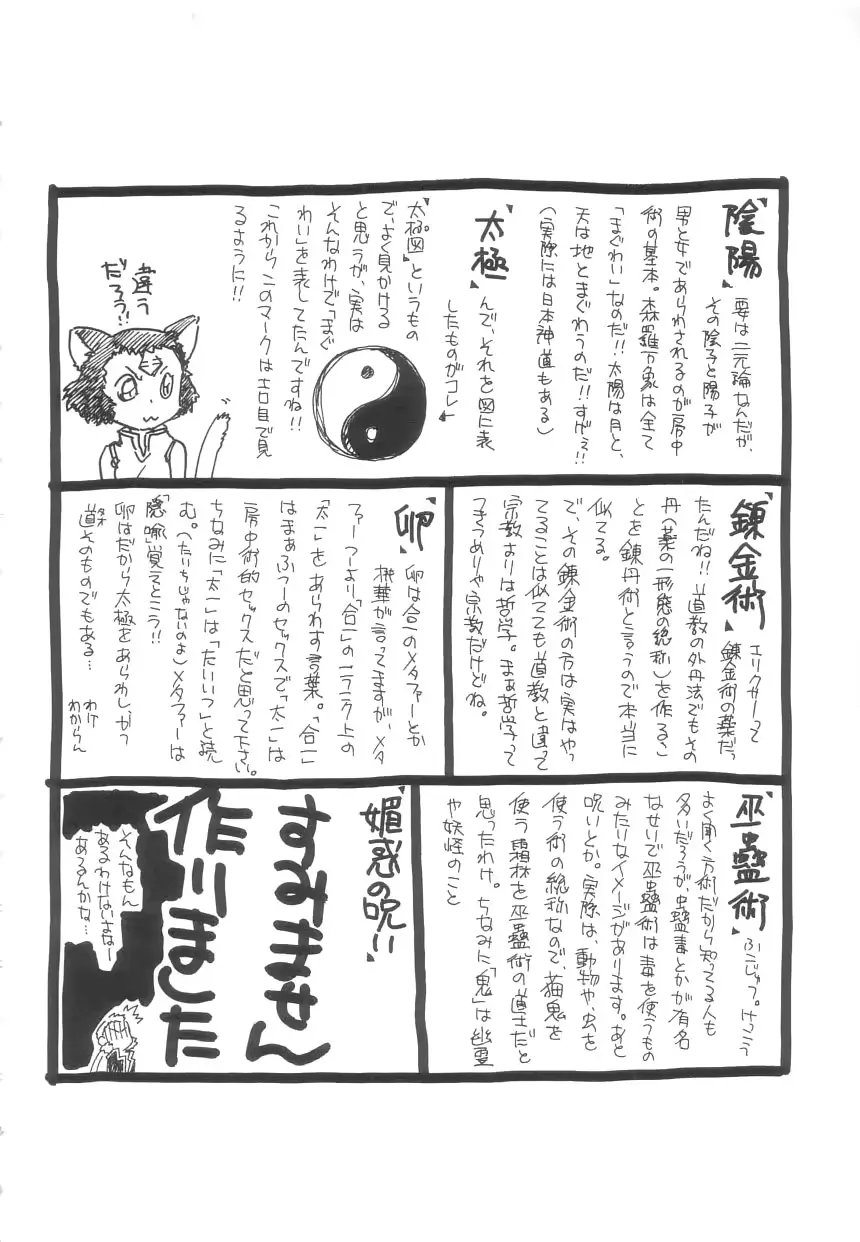 陰陽
要は二元論なんだが、
その陰子と陽子が
男と女であらわされるのが房中
術の基本。森羅万象は全て
「まぐわい」なのだ!!太陽は月と、
天は地とまぐわうのだ!!すげぇ!!
(実際には日本神道もある)
太極
んで、それを図に表
したものがコレ
「太極図」というもの
で、よく見かける
と思うが、実は
そんなわけで「まぐ
わい」を表してたんですね!!
これからこのマークはエロ目で見
るように!!
違う
だろう!!
錬金術
エリクサーって
錬金術の薬だっ
たんだね!!道教の外丹法でもその
丹(薬の一形態の総称)を作るこ
とを錬丹術と言うので本当に
似てる。
で、その錬金術の方は実はやっ
てることは似てても道教と違って
宗教よりは哲学。まぁ哲学って
つきつめりゃ宗教だけどね。
卵
卵は合一のメタファーとか
桃華が言ってますが、メタ
ファーつーより「合一」の1ランク上の
「太一」をあらわす言葉。「合一」
はまぁふつーのセックスで「太一」は
房中術的セックスだと思って下さい。
ちなみに「太一」は「たいいつ」と読
む。(たいちじゃないのよ)メタファーは
「隠喩」覚えとこう!!
卵はだから太極をあらわしかつ
道そのものでもある…
タオ
わけ
わからん
巫蠱術
ふこじゅつ。けっこう
よく聞く方術だから知ってる人も
多いだろうが、虫蠱毒とかが有名
なせいで巫蠱術は毒を使うもの
みたいなイメージがあります。あと
呪いとか。実際は、動物や、虫を
使う術の総称なので、猫鬼を
使う霜林を巫蠱術の道士だと
思ったわけ。ちなみに「鬼」は幽霊
や妖怪のこと
媚惑の呪い
すみません
作りました
そんなもん
あるわけないよなー
あるんかな…